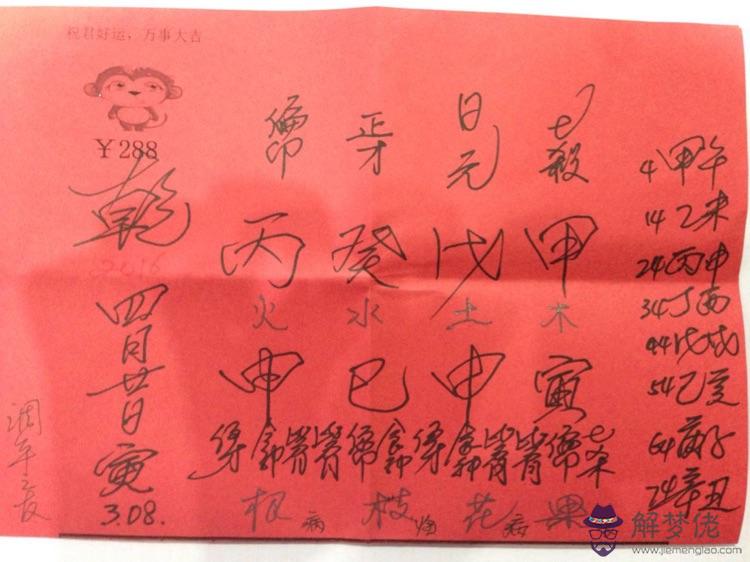 祝君好运，万事大吉
¥288
乾
2016
四月廿
日
寅
3.08.
偏印 正才 日元 七殺
丙 癸 戊 甲
火 水 土 木
申 巳 申 寅
根 病 枝 花 病 果
4 甲午
14 乙未
24 丙申
34 丁酉
44 戊戌
54 己亥
64 庚子
74 辛丑
解梦佬
www.jiemenglao.com